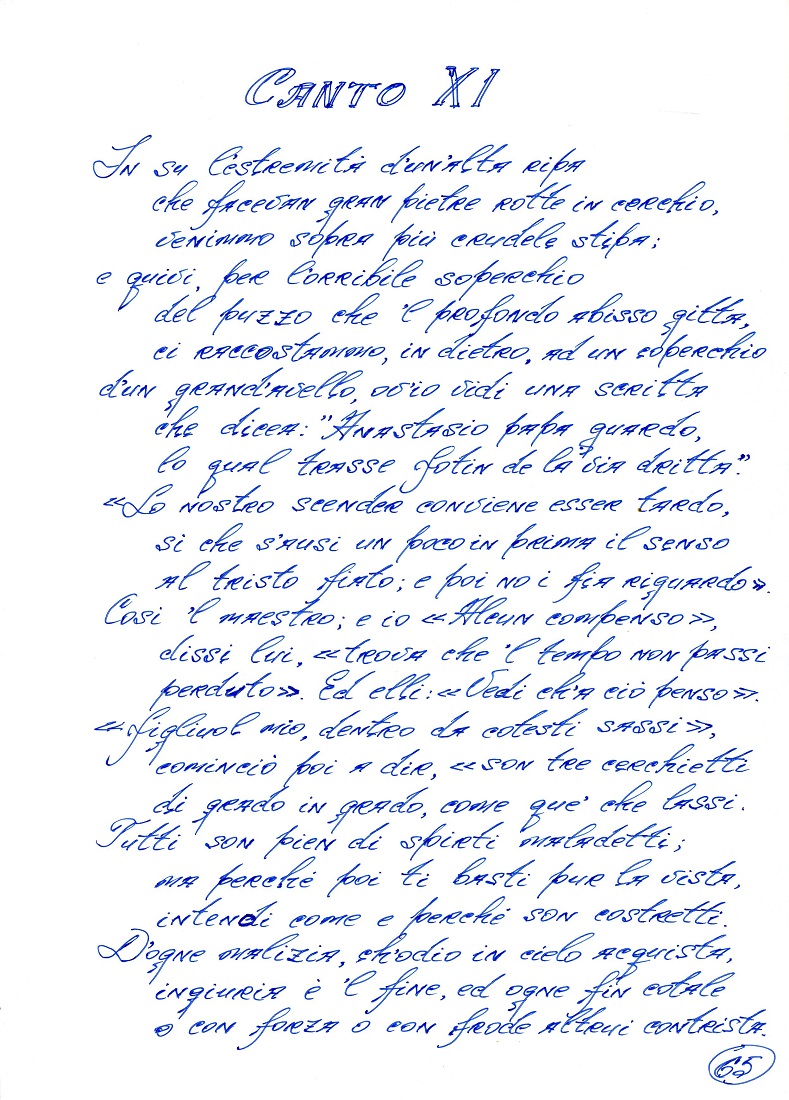 CANTO XI
In su l'estremità d'un'alta ripa
che facevan gran pietre rotte in cerchio,
venimmo sopra più crudele stipa;
e quivi, per l'orribile soperchio
del puzzo che 'l profondo abisso gitta,
ci raccostammo, in dietro, ad un coperchio
d'un grand'avello, ov'io vidi una scritta
che dicea: "Anastasio papa guardo,
lo qual trasse Fotin de la via dritta".
«Lo nostro scender conviene esser tardo,
si che s'ausi un poco in prima il senso
al tristo fiato; e poi no i fia riguardo».
Cosi 'l maestro; e io «Alcun compenso»,
dissi lui, «trova che 'l tempo non passi
perduto». Ed elli: «Vedi ch'a ciò penso».
«Figliuol mio, dentro da cotesti sassi»,
cominciò poi a dir, «son tre cerchietti
di grado in grado, come que' che lassi.
Tutti son pien di spirti maladetti;
ma perché poi ti basti pur la vista,
intendi come e perché son costretti.
D'ogne malizia, ch'odio in cielo acquista,
ingiuria è 'l fine, ed ogne fin cotale
o con forza o con frode altrui contrista.
65